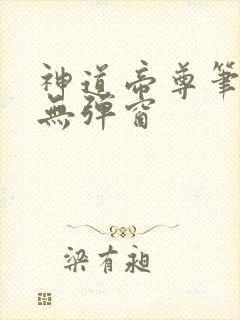 神道帝尊筆
無彈窗
梁有昶